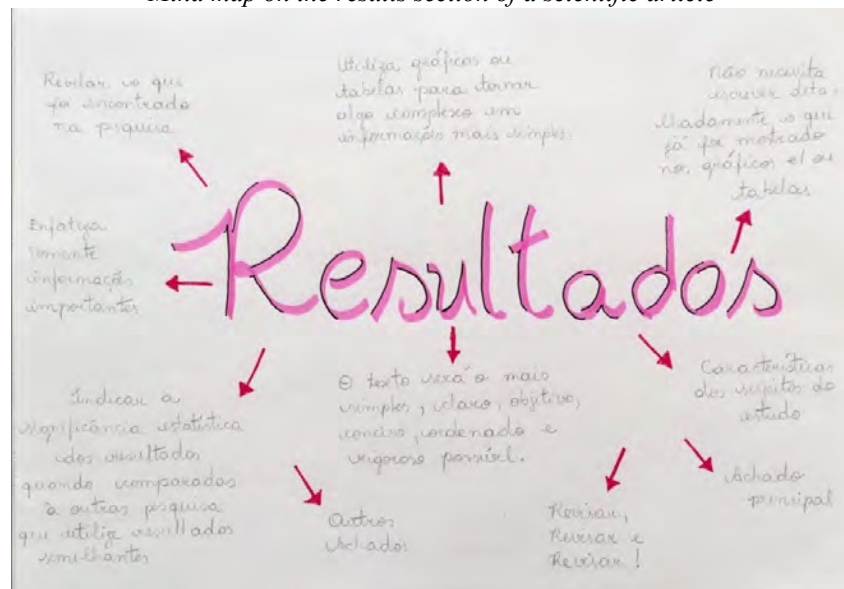 Mind map on the results section of a scientific article
Revelar o que
foi encontrado
na pesquisa
Utiliza gráficos ou
tabelas para tornar
algo complexo em
informações mais simples.
Não necessita
escrever deta-
lhadamente o que
já foi mostrado
nos gráficos e/ou
tabelas
Enfatiza
somente
informações
importantes
Resultados
Indicar a
significância estatística
dos resultados
quando comparados
à outras pesquisa
que utiliz resultados
semelhantes
Outros
Achados
O texto será o mais
simples, claro, objetivo,
conciso, ordenado e
rigoroso possível.
Revisar,
Revisar e
Revisar!
Características
dos sujeitos do
estudo
Achado
principal